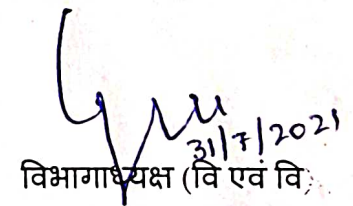 31/7/2021
विभागाध्यक्ष (वि एवं वि)